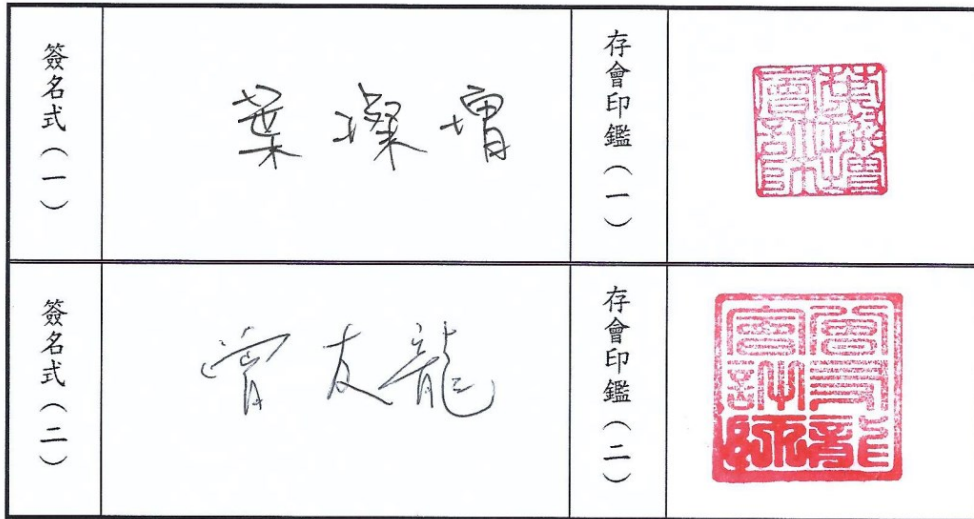 簽名式(一)
葉燦增
存會印鑑(一)
葉燦增
會計師
簽名式(二)
曾友龍
存會印鑑(二)
曾友龍
會計師